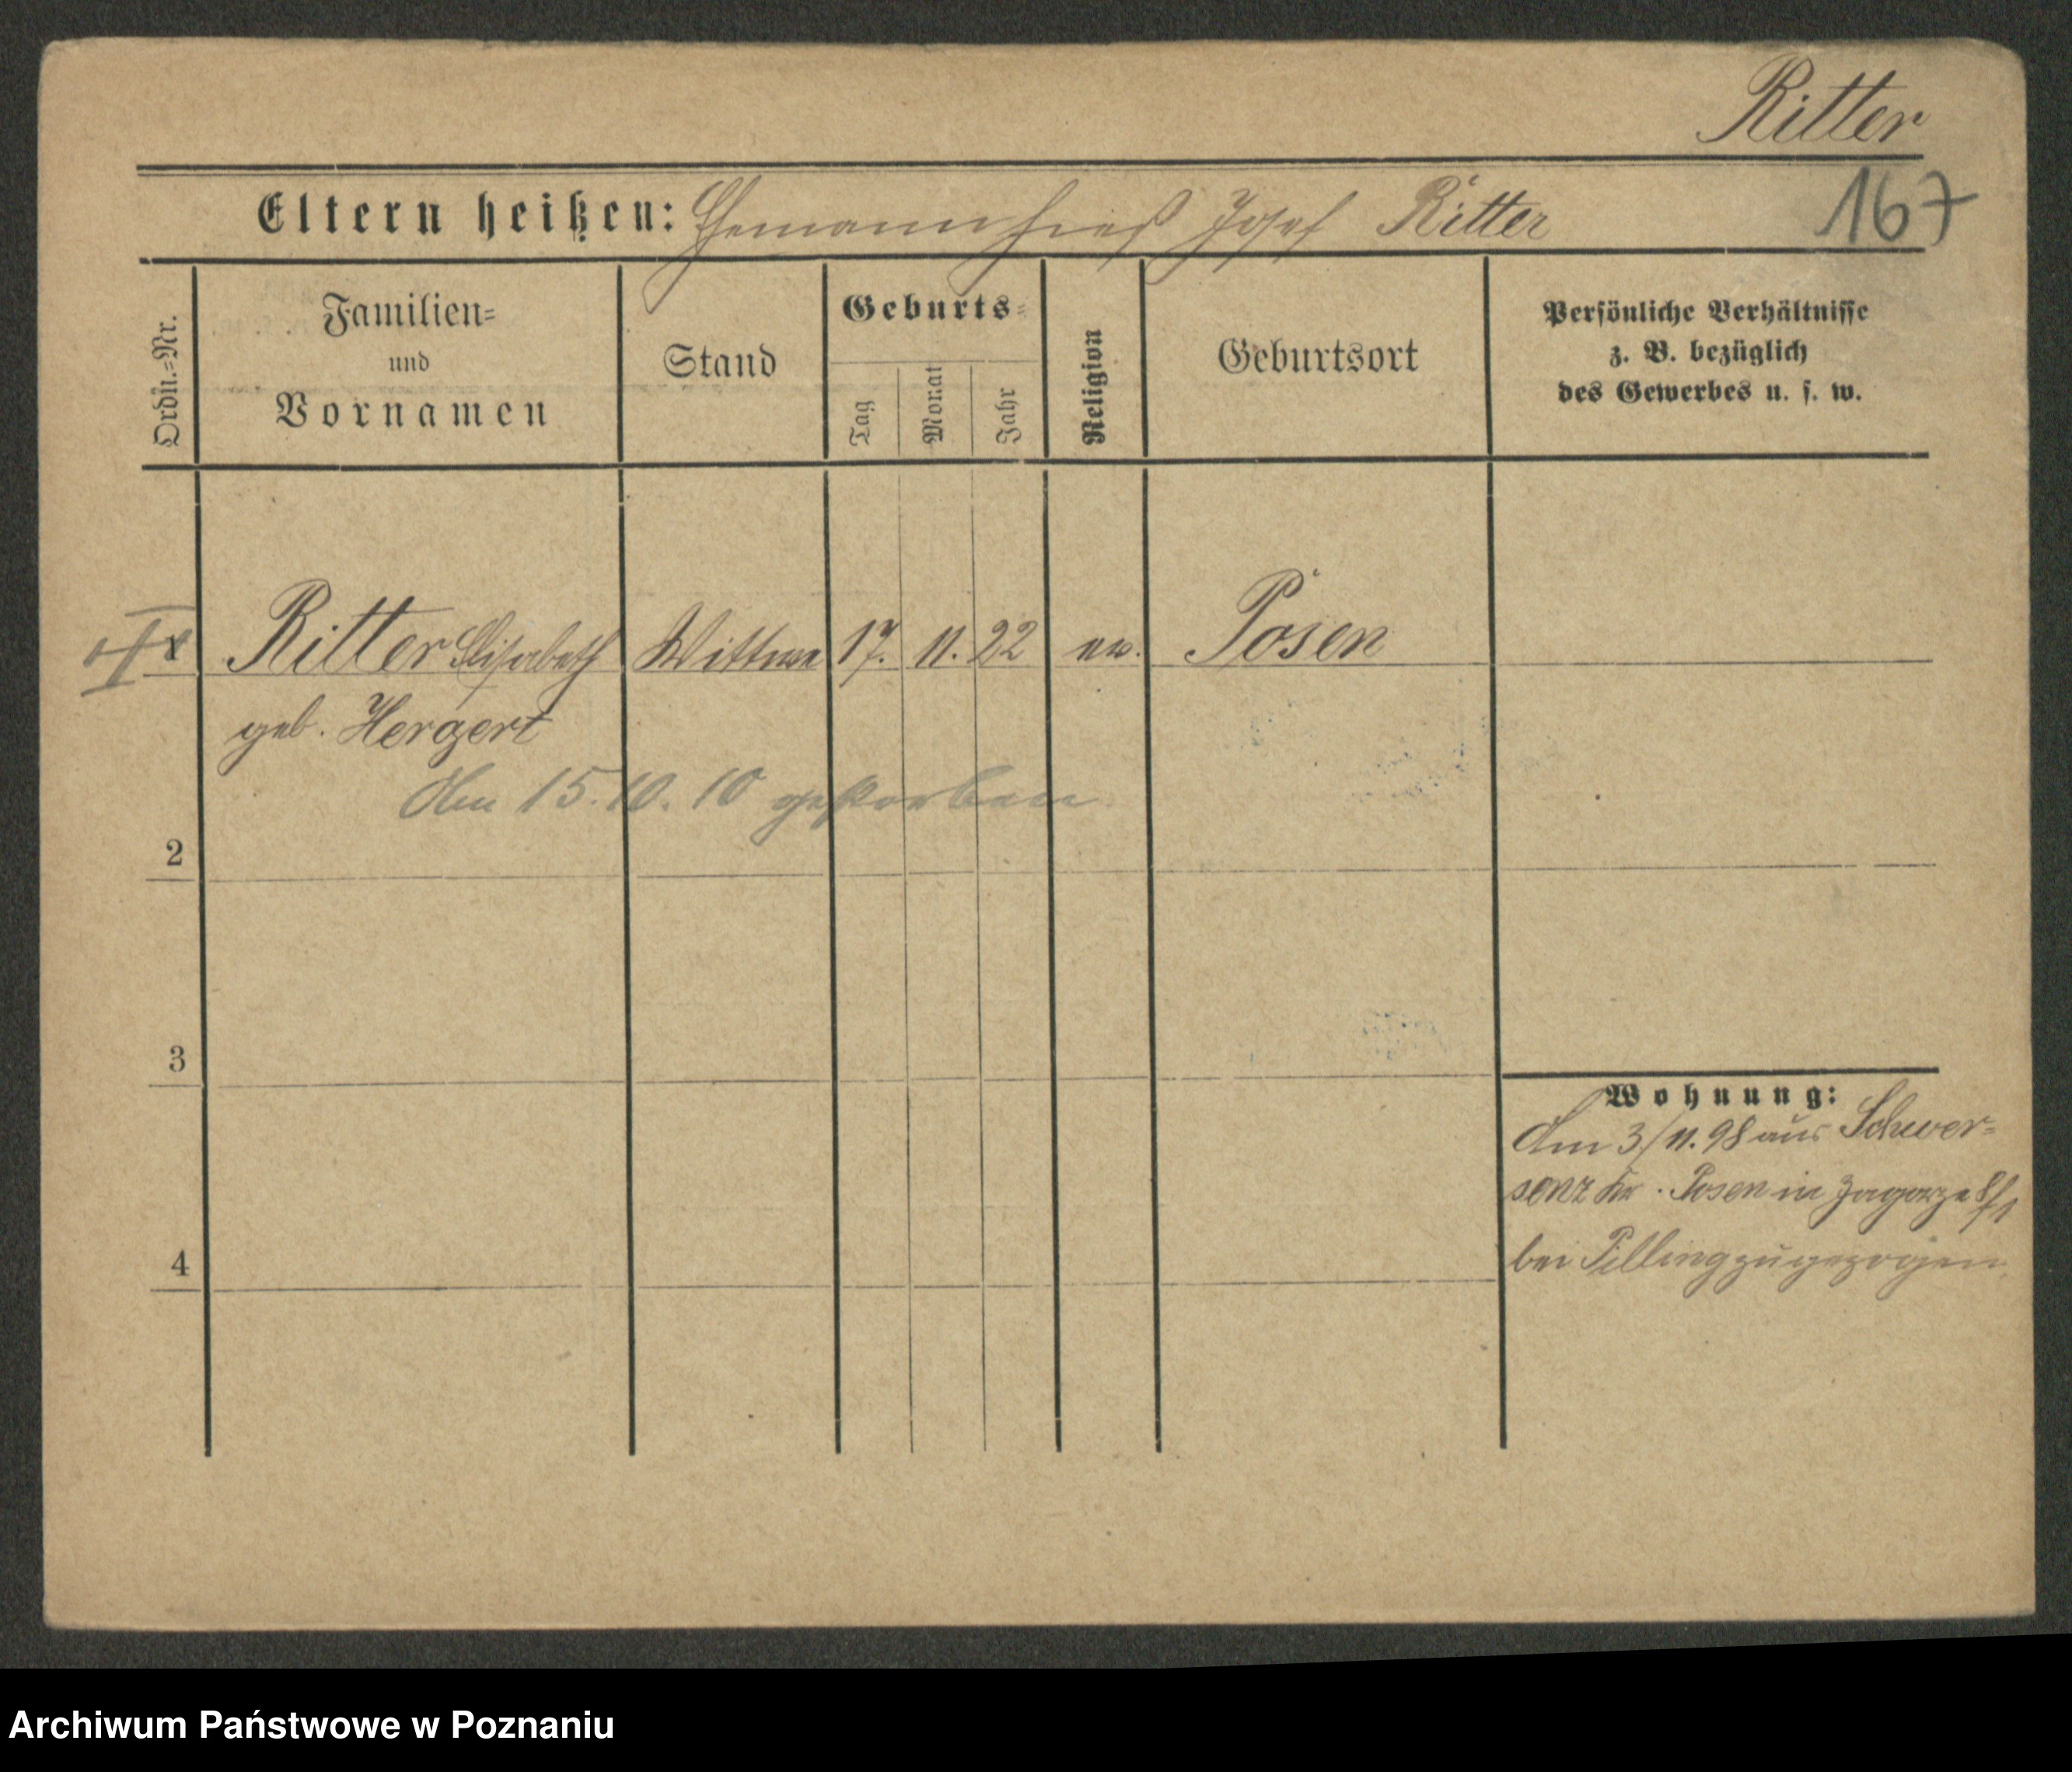 Ritter
167
Eltern heißen: Ehemann hieß Josef Ritter
Ordn.=Nr.
Familien=
und
Vornamen
Stand
Geburts=
Tag
Monat
Jahr
Religion
Geburtsort
Persönliche Verhältnisse
z. B. bezüglich
des Gewerbes u. s. w.
Ritter Elisabeth Wittwe 17. 11. 22 ev. Posen
geb. Hergert
Am 15.10.10 gestorben.
2
3
4
Wohnung:
Am 3/11.98 aus Schwer=
senz Kr. Posen in Zagorze
bei Pilling zugezogen.
Archiwum Państwowe w Poznaniu